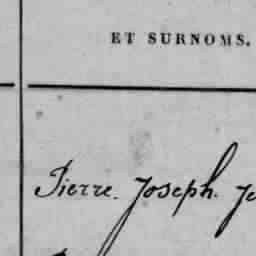 ET SURNOMS.
Pierre. Joseph.